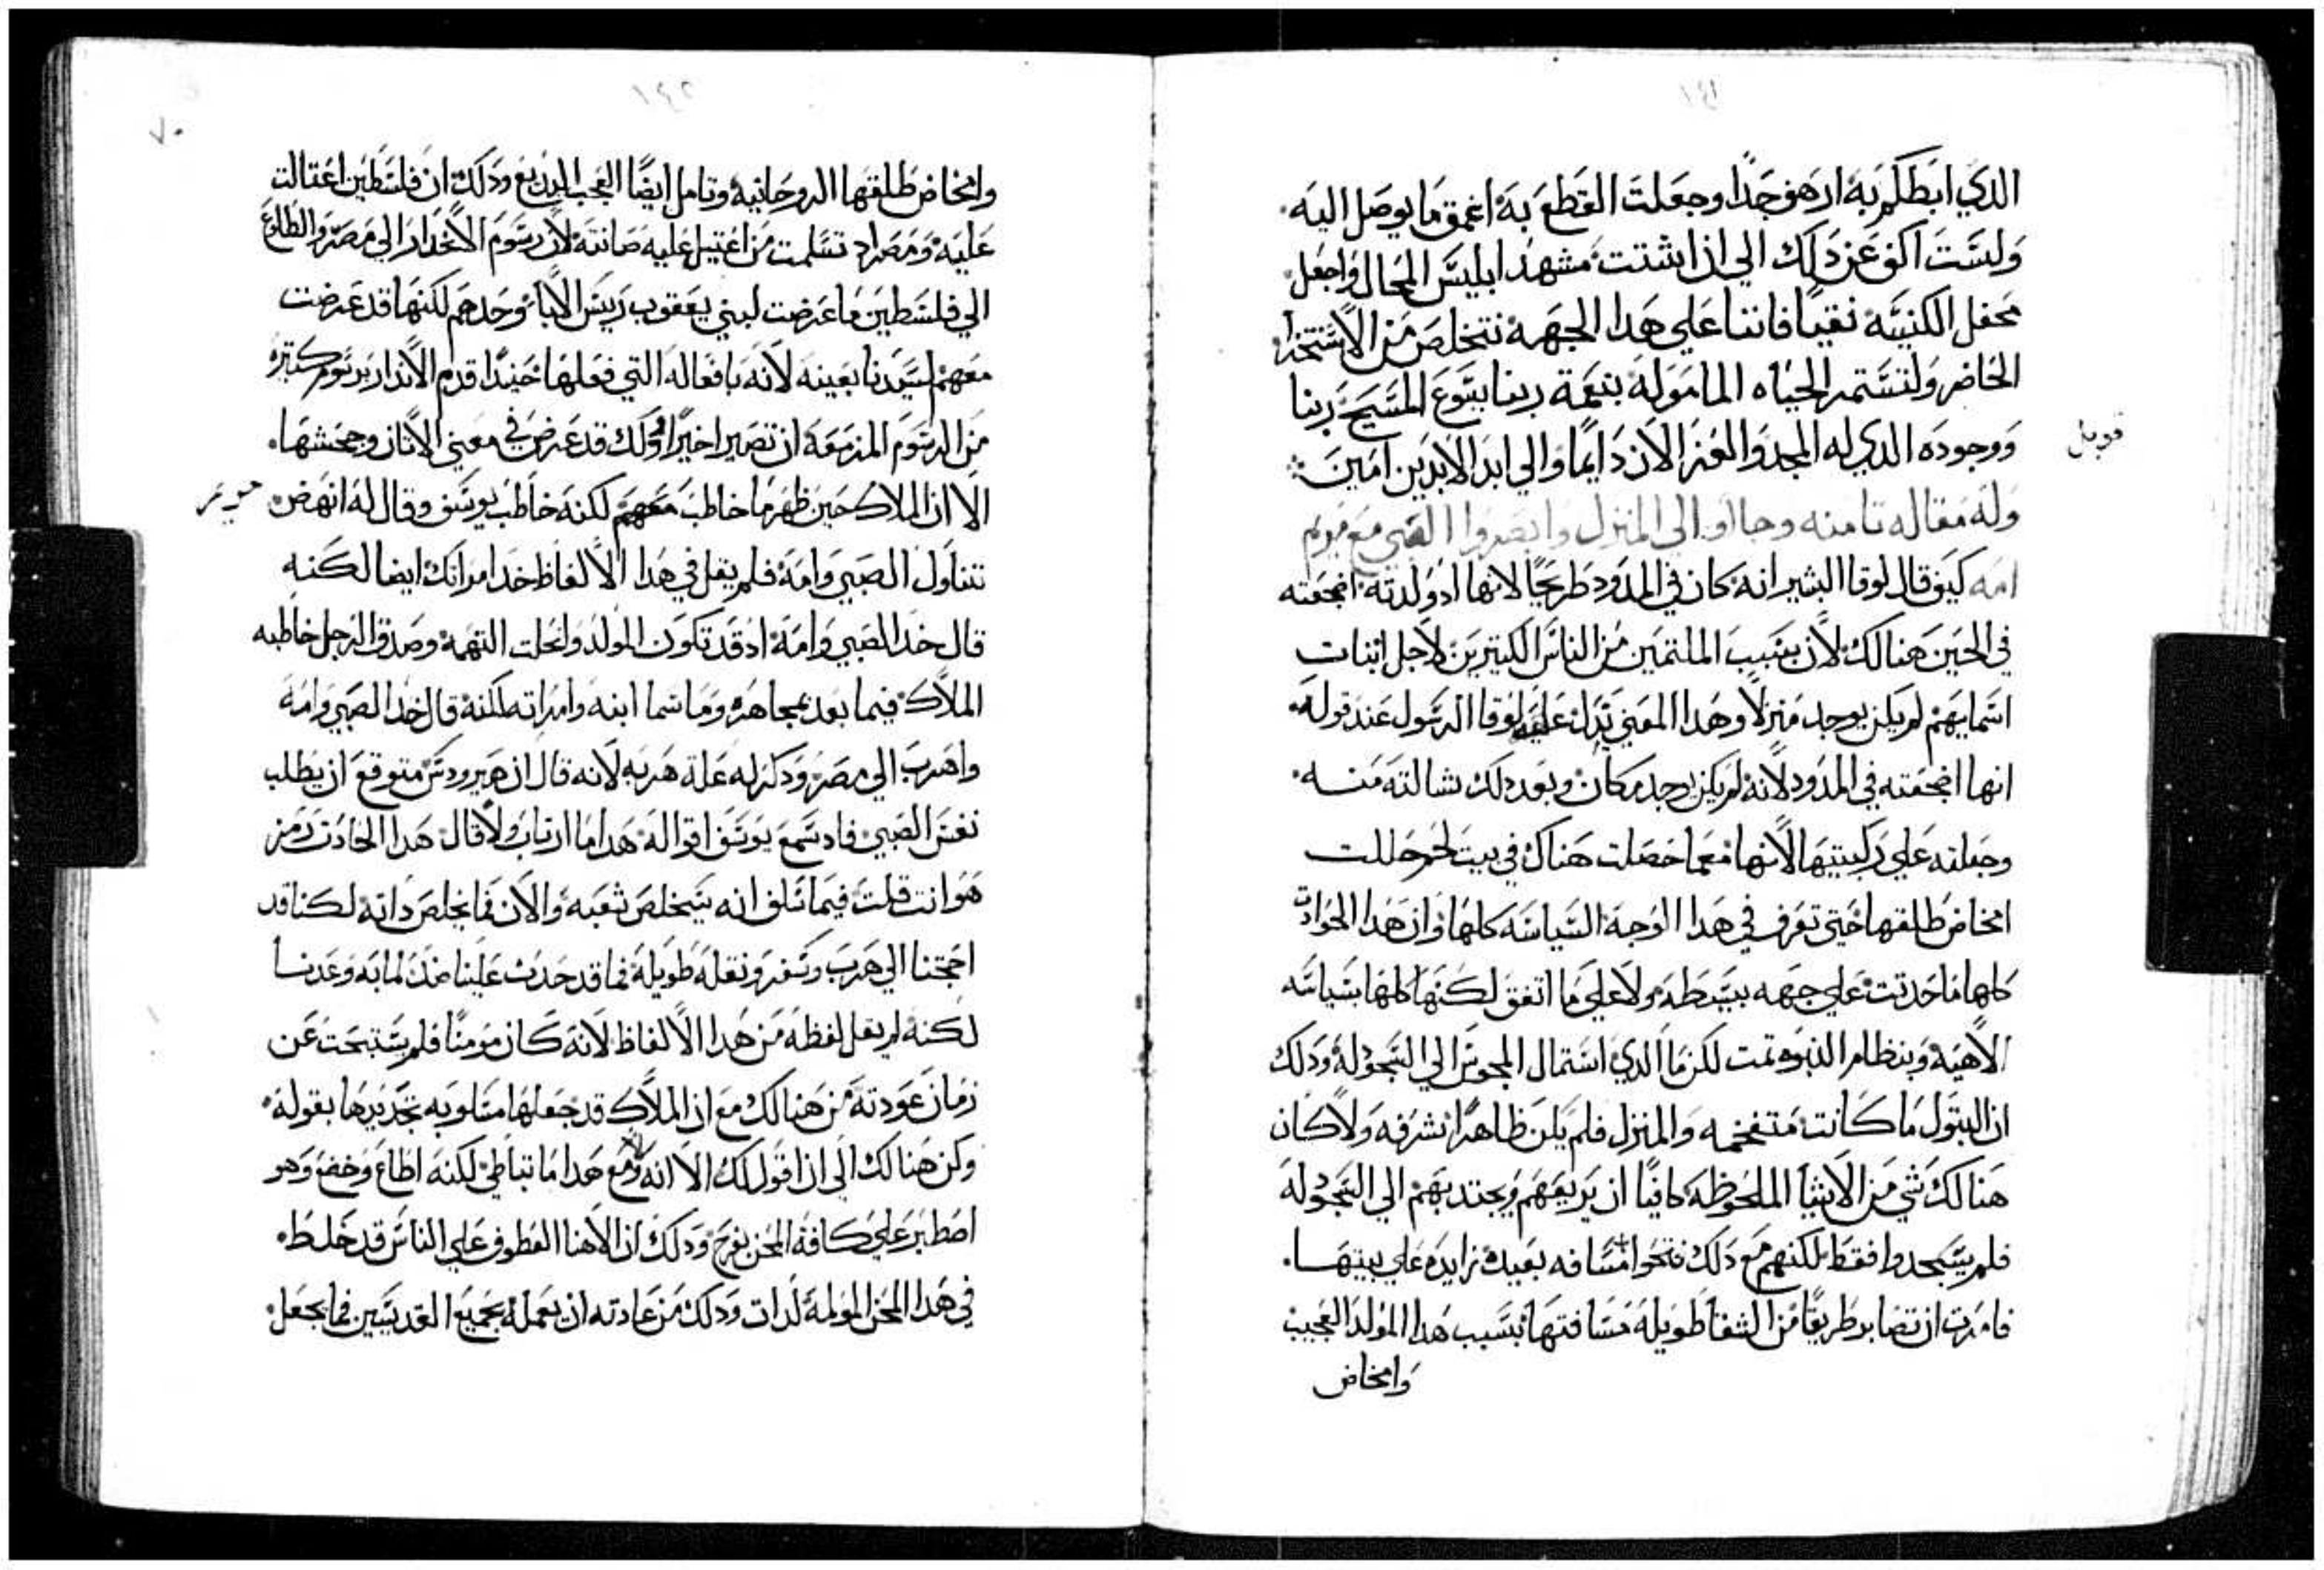 ١٤١
الدي ابطلكم به ارهف جدا وجعلت القطع به اعمق ما يوصل اليه.
ولست اكف عن دلك الي ان اشتت مشهد ابليس المحال واجعل
محفل الكنيسه نقيا فاننا علي هدا الجهه نتخلص من الاستخدا
الحاضر ولنستمر الحياه المامولة بنعمة ربنا يسوع المسيح ربنا
ووجوده الدي له المجد والعز الان دايما والي ابد الابدين امين
قوبل
وله مقاله تامنه وجااوا الي المنزل وابصروا الصبي مع مريم
امه كيف قال لوقا البشير انه كان في المدود طريحا لانها اد ولدته اضجعته
في الحين هنالك لان بسبب الملتمين من الناس الكتيرين لاجل اتبات
اسمايهم لم يكن يوجد منزلا وهدا المعني يدل عليه لوقا الرسول عند قوله
انها اضجعته في المدود لانه لم يكن يوجد مكان وبعد دلك شالته منه.
وجعلته علي ركبتيها لانها معما حصلت هناك في بيت لحم حللت
امخاض طلقها حتي تعرف في هدا الوجه السياسه كلها وان هدا الحوادت
كلها ما حدتت علي جهه بسيطه ولا علي ما اتفق لكنها كلها بسياسه
الاهية وبنظام النبوه تمت لكن ما الدي استمال المجوس الي السجود له ودلك
ان البتول ما كانت متفخمه والمنزل فلم يكن ظاهرا شرفه ولا كان
هنالك شي من الاشيا الملحوظه كافيا ان يريعهم ويجتدبهم الي السجود له
فلم يسجدوا فقط لكنهم مع دلك فتحوا مسافه بعيده زايده علي بيتها.
فامرت ان تصابر طريقا من الشقا طويلة مسافتها بسبب هدا المولد العجيب
وامخاض
١٤٢
٧٠
وامخاض طلقها الروحانية وتامل ايضا العجب البديع ودلك ان فلسطين اغتالت
عليه ومصر اد تسلمت من اغتيل عليه صانته لان رسوم الانحدار الي مصر والطلوع
الي فلسطين ما عرضت لبني يعقوب ريس الابا وحدهم لكنها قد عرضت
معهم لسيدنا بعينه لانه بافعاله التي فعلها حينيدا قدم الاندار برسوم كتيره
من الرسوم المزمعة ان تصير اخيرا ودلك قد عرض في معني الاتان وجحشها.
الا ان الملاك حين ظهر ما خاطب معهم لكنه خاطب يوسف وقال له انهض
تتناول الصبي وامه فلم يقل في هدا الالفاظ خد امراتك ايضا لكنه
قال خد الصبي وامه اد قد تكون المولد وانحلت التهمة وصدق الرجل خاطبه
الملاك فيما بعد بمجاهره وما سما ابنه وامراته لكنه قال خد الصبي وامه
واهرب الي مصر ودكر له علة هربه لانه قال ان هيرودس متوقع ان يطلب
نفس الصبي فاد سمع يوسف اقواله هدا ما ارتاب ولا قال هدا الحادت رمز
هو انت قلت فيما سلف انه سيخلص شعبه والان فما يخلص داته لكنا قد
احتجنا الي هرب وسفر ونقله طويلة فما قد حدت علينا ضد لما به وعدنا
لكنه لم يقل لفظه من هدا الالفاظ لانه كان مومنا فلم يستبحت عن
زمان عودته من هنالك مع ان الملاك قد جعلها متلوبه تحديدها بقوله
وكن هنالك الي ان اقول لك الا انه ومع هدا ما تباطي لكنه اطاع وخضع وهو
اصطبر علي كافة المحن بفرح ودلك ان الاهنا العطوف علي الناس قد خلط
في هدا المحن المولمة لدات ودلك من عادته ان يعمله بجميع القديسين فما يجعل